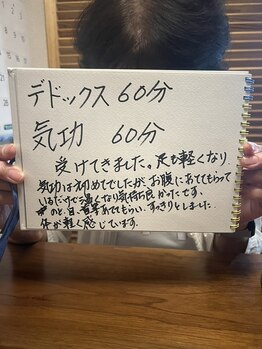 デドックス 60分
気功 60分
受けてきました。足も軽くなり
気功は初めてでしたが、お腹にあててもらって
いるだけで温くなり気持ち良かったです。
のど、目、背等あてもらい、すっきりとしました。
体が軽く感じています。